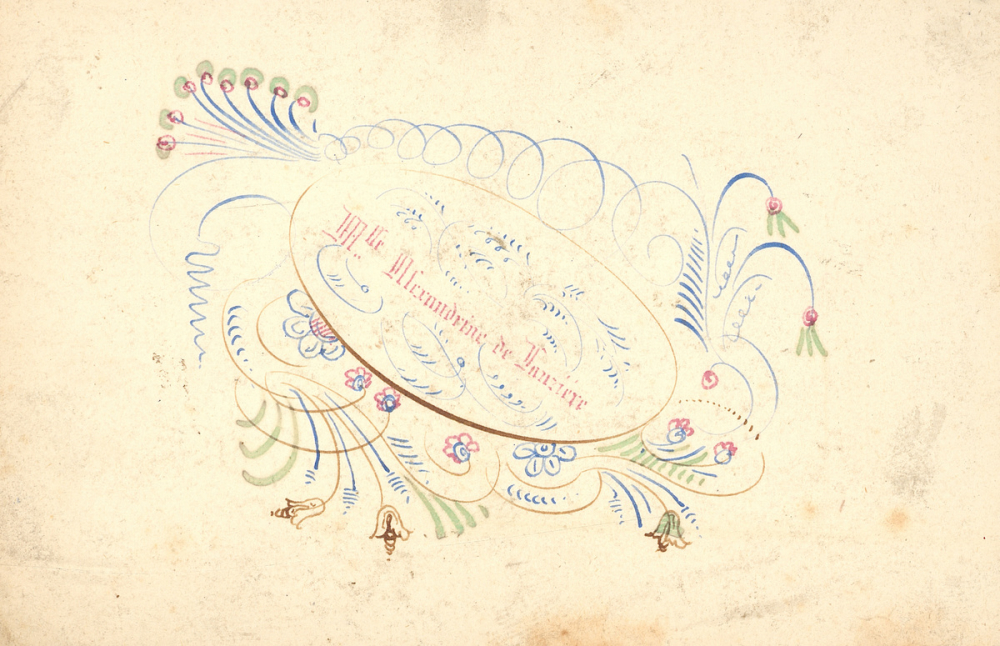 M.lle Alexandrine de Lauzière